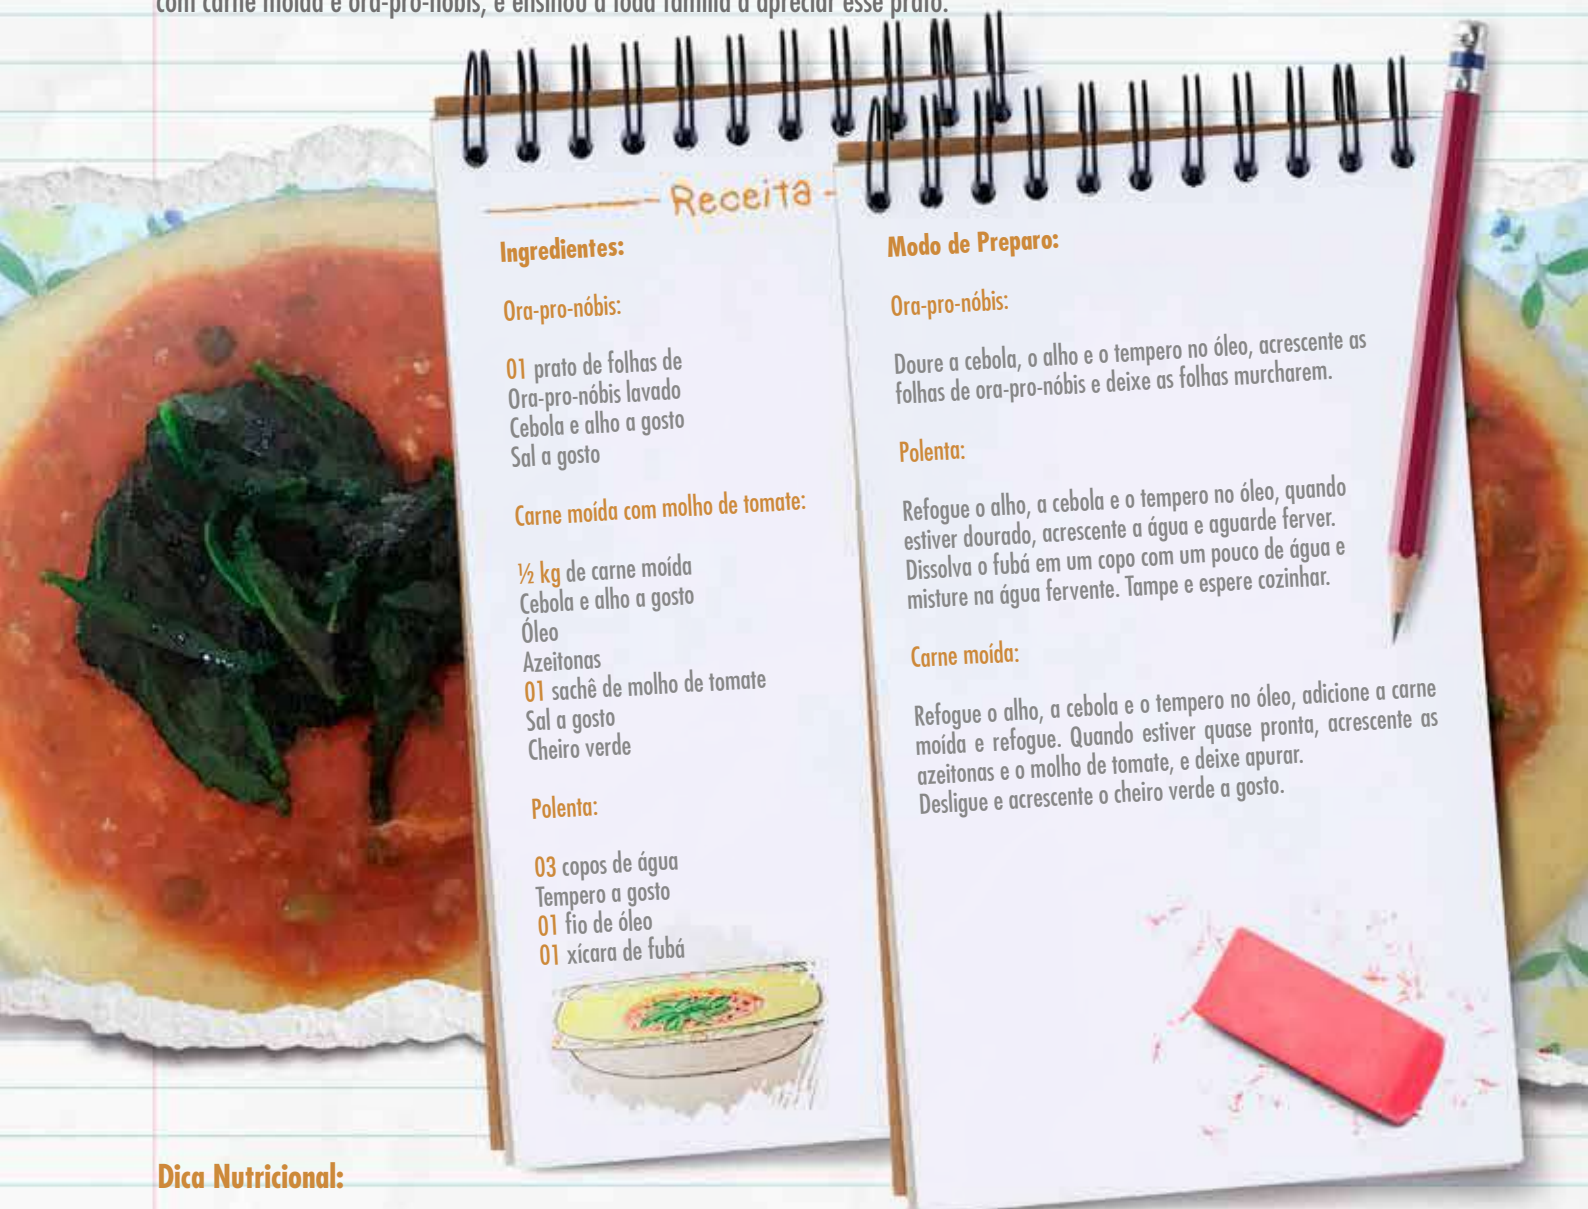 com carne moída e ora-pro-nóbis, e ensinou a toda família a apreciar esse prato.
Receita
Ingredientes:
Ora-pro-nóbis:
01 prato de folhas de
Ora-pro-nóbis lavado
Cebola e alho a gosto
Sal a gosto
Carne moída com molho de tomate:
½ kg de carne moída
Cebola e alho a gosto
Óleo
Azeitonas
01 sachê de molho de tomate
Sal a gosto
Cheiro verde
Polenta:
03 copos de água
Tempero a gosto
01 fio de óleo
01 xícara de fubá
Modo de Preparo:
Ora-pro-nóbis:
Doure a cebola, o alho e o tempero no óleo, acrescente as
folhas de ora-pro-nóbis e deixe as folhas murcharem.
Polenta:
Refogue o alho, a cebola e o tempero no óleo, quando
estiver dourado, acrescente a água e aguarde ferver.
Dissolva o fubá em um copo com um pouco de água e
misture na água fervente. Tampe e espere cozinhar.
Carne moída:
Refogue o alho, a cebola e o tempero no óleo, adicione a carne
moída e refogue. Quando estiver quase pronta, acrescente as
azeitonas e o molho de tomate, e deixe apurar.
Desligue e acrescente o cheiro verde a gosto.
Dica Nutricional: